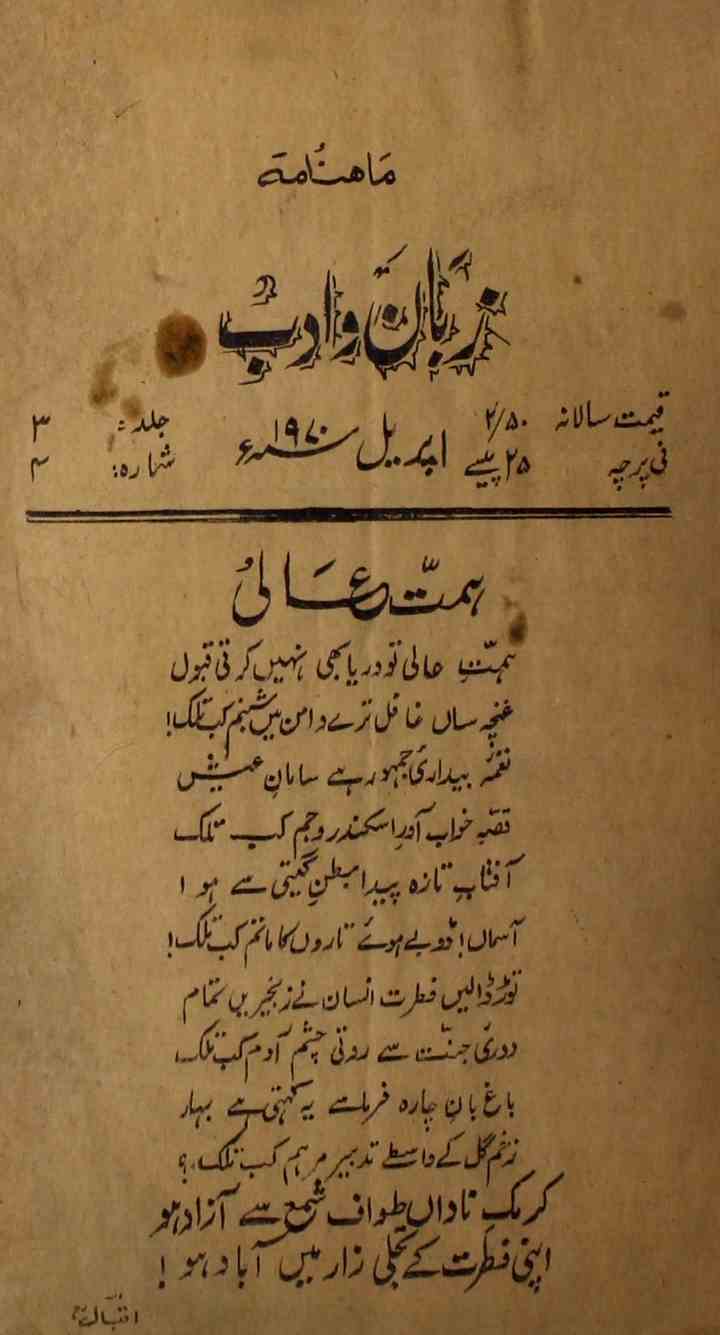 ماہنامہ
زبان و ادب
قیمت سالانہ ۲/۵۰ اپریل ۱۹۷۰ء جلد: ۳
فی پرچہ ۲۵ پیسے شمارہ: ۴
ہمت عالی
ہمّتِ عالی تو دریا بھی نہیں کرتی قبول
غنچہ ساں غافل ترے دامن میں شبنم کب تلک!
نغمۂ بیداریٔ جمہور ہے سامانِ عیش
قصّۂ خواب آورِ اسکندر و جم کب تلک
آفتابِ تازہ پیدا بطنِ گیتی سے ہوا
آسماں! ڈوبے ہوئے تاروں کا ماتم کب تلک!
توڑ ڈالیں فطرت انسان نے زنجیریں تمام
دوریٔ جنّت سے روتی چشمِ آدم کب تلک
باغ بانِ چارہ فرما سے یہ کہتی ہے بہار
زخمِ گل کے واسطے تدبیرِ مرہم کب تلک؟
کرمکِ ناداں طواف شمع سے آزاد ہو
اپنی فطرت کے تجلی زار میں آباد ہو!
اقبالؒ